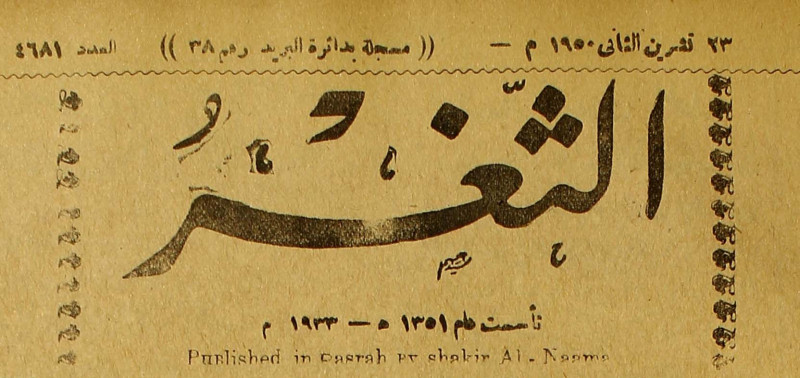 ٢٣ تشرين الثاني ١٩٥٠ م — (( مسجلة بدائرة البريد رقم ٣٨ )) العدد ٤٦٨١
الثَّغْرُ
تأسست عام ١٣٥١ ه — ١٩٣٣ م
Published in Basrah BY shakir AL - Naama